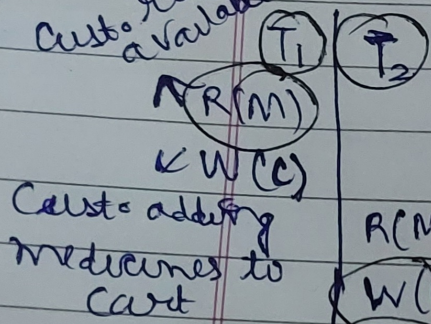 Custo
available T1 T2
R(M)
W(C)
Custo adding R(M
medicines to
cart W(